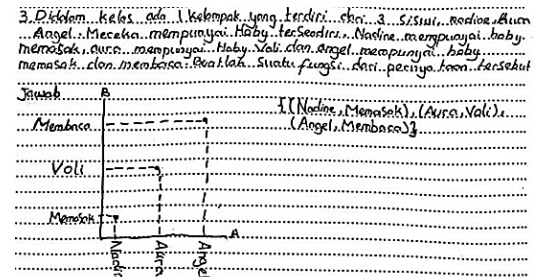 3. Didalam kelas ada 1 kelompok yang terdiri dari 3 siswi, Nadine, Aura
Angel. Mereka mempunyai Hoby tersendiri. Nadine mempunyai hoby
memasak, aura mempunyai Hoby Voli dan angel mempunyai hoby
memasak dan membaca. Buatlah suatu fungsi dari pernyataan tersebut
Jawab
B
{(Nadine, Memasak), (Aura, Voli),
(Angel, Membaca)}
Membaca
Voli
Memasak
A
Nadi
Aura
Angel